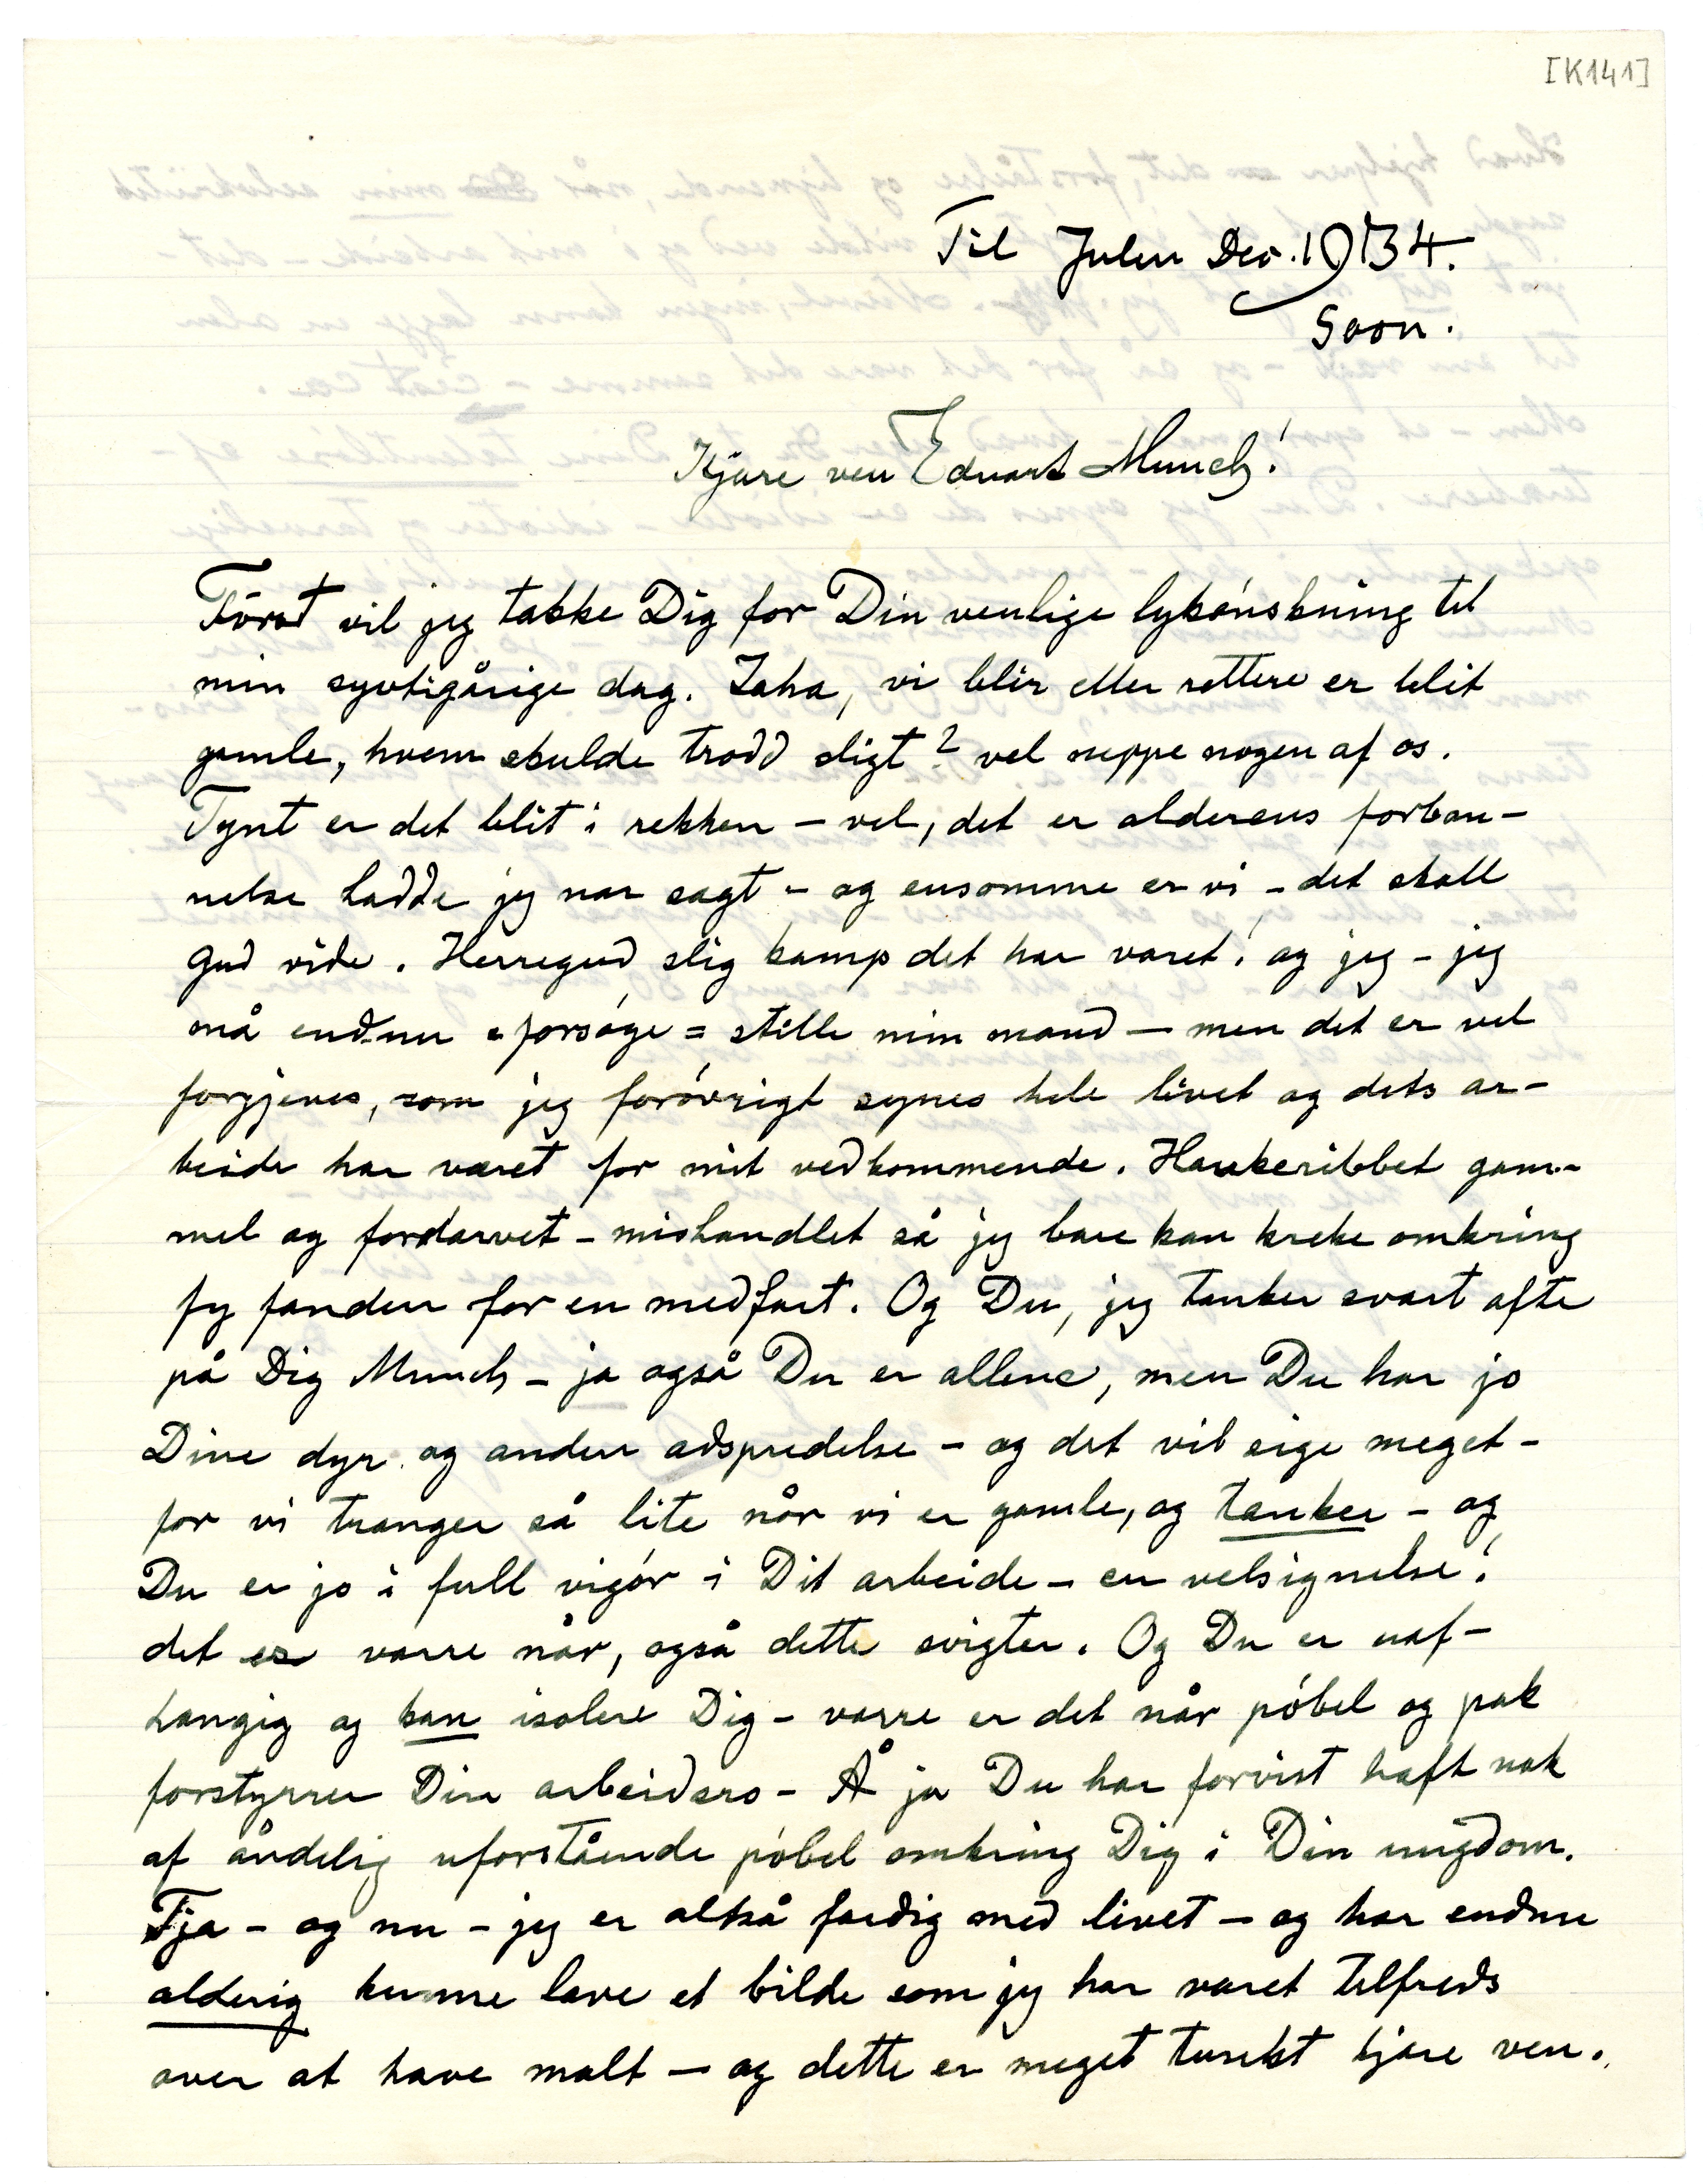 [K141]
Til Julen Dec. 1934.
Soon.
Kjære ven Edvart Munch!
Først vil jeg takke Dig for Din venlige lykønskning til
min syvtigårige dag. Jaha, vi blir eller rettere er blit
gamle, hvem skulde trodd sligt? vel neppe nogen af os.
Tynt er det blit i rekken – vel, det er alderens forban-
nelse hadde jeg nær sagt – og ensomme er vi – det skall
Gud vide. Herregud slig kamp det har været! og jeg – jeg
må endnu = forsøge = stille min mand – men det er vel
forgjeves, som jeg forøvrigt synes hele livet og dets ar-
beide har været for mit vedkommende. Haukeribbet gam-
mel og fordærvet – mishandlet så jeg bare kan kreke omkring
fy fanden for en medfart. Og Du, jeg tænker svært ofte
på Dig Munch – ja også Du er allene, men Du har jo
Dine dyr og anden adspredelse – og det vil sige meget –
for vi trænger så lite når vi er gamle, og tænker – og
Du er jo i full vigør i Dit arbeide – en velsignelse!
det er værre når, også dette svigter. Og Du er uaf-
hængig og kan isolere Dig – værre er det når pøbel og pak
forstyrrer Din arbeidsro – Å ja Du har forvist haft nok
af åndelig uforstående pøbel omkring Dig i Din ungdom.
Tja – og nu – jeg er altså færdig med livet – og har endnu
alderig kunne lave et bilde som jeg har været tilfreds
over at have malt – og dette er meget tungt kjære ven.